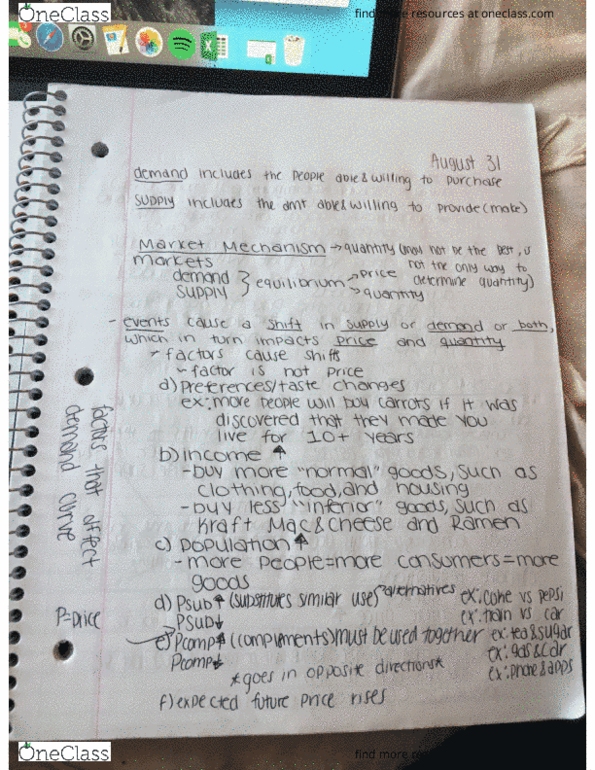 OneClass
find more resources at oneclass.com
August 31
demand includes the people able & willing to purchase
supply includes the amt able & willing to provide (make)
Market Mechanism → quantity (may not be the best,
not the only way to
markets
determine quantity)
demand
supply } equilibrium → price
→ quantity
- events cause a shift in supply or demand or both,
which in turn impacts price and quantity
factors cause shifts
factor is not price
a) Preferences/taste changes
ex: more people will buy carrots if it was
discovered that they made you
live for 10+ years
b) income ↑
- buy more "normal" goods, such as
clothing, food, and housing
- buy less "inferior" goods, such as
Kraft Mac & Cheese and Ramen
c) population ↑
- more people = more consumers = more
goods
d) Psub ↑ (substitutes similar use) → alternatives ex: coke vs pepsi
Psub ↓ ex: train vs car
e) Pcomp ↑ (compliments) must be used together ex: tea & sugar
Pcomp ↓ ex: gas & car
*goes in opposite directions* ex: phone & apps
f) expected future price rises
factors that affect
demand curve
P=price
OneClass
find more